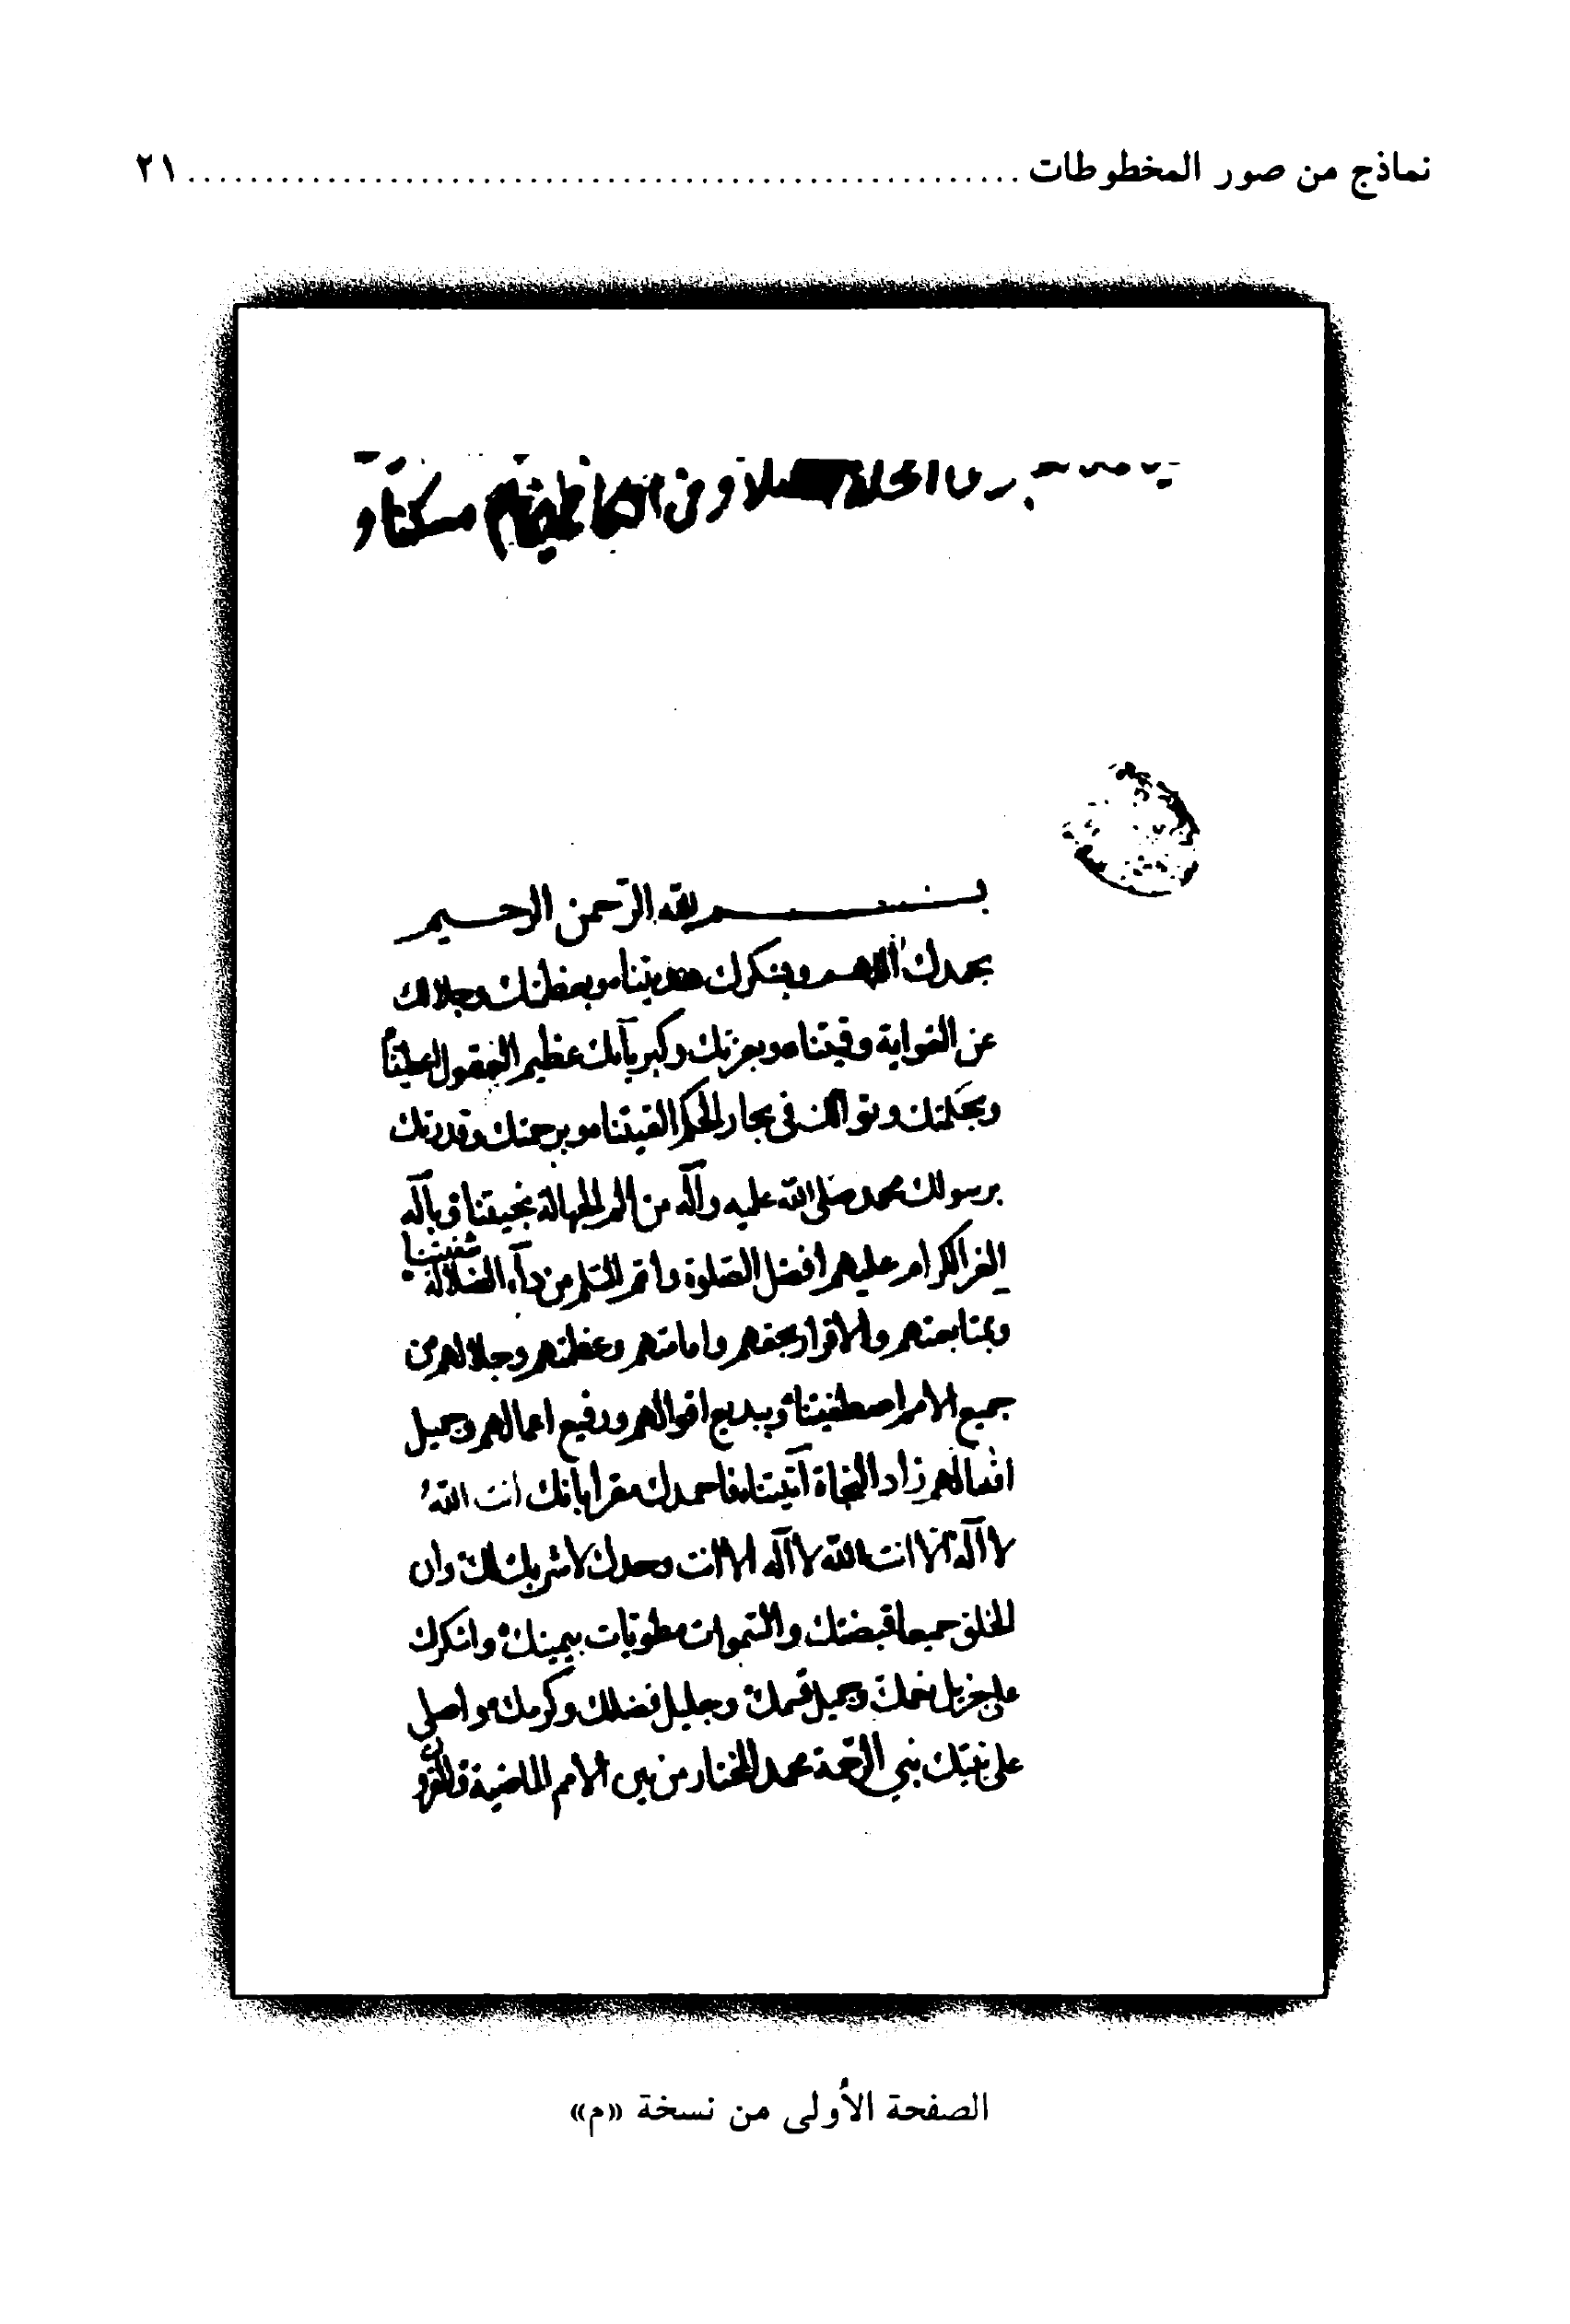 نماذج من صور المخطوطات ........................................................ ٢١
الحلة من الكاظمين مسكنا و
بسم الله الرحمن الرحيم
بحمدك اللهم وبشكرك هديتنا وبعظمتك وجلالك
عن الغواية وقيتنا وبعزتك وكبريائك عظيم العقول اعطيتنا
وبحكمتك ونوالك في بحار الحكم القيتنا وبرحمتك وقدرتك
برسولك محمد صلى الله عليه وآله من الم الجهالة نجيتنا وبآله
الغر الكرام عليهم افضل الصلوة واتم السلم من داء الضلالة شفيتنا
وبمتابعتهم والاقرار بحقهم وامامتهم وعظمتهم وجلالهم من
جميع الامم اصطفيتنا وببديع اقوالهم ورفيع اعمالهم وجميل
افعالهم زاد النجاة آتيتنا فاحمدك مقرا بانك انت الله
لا آله الا انت الله لا آله الا انت وحدك لا شريك لك وان
الخلق جميعا قبضتك والسموات مطويات بيمينك واشكرك
على جزيل نعمك وجميل قسمك وجليل فضلك وكرمك واصلي
على نبيك نبي الرحمة محمد المختار من بين الامم الماضية والقرون
الصفحة الأولى من نسخة «م»